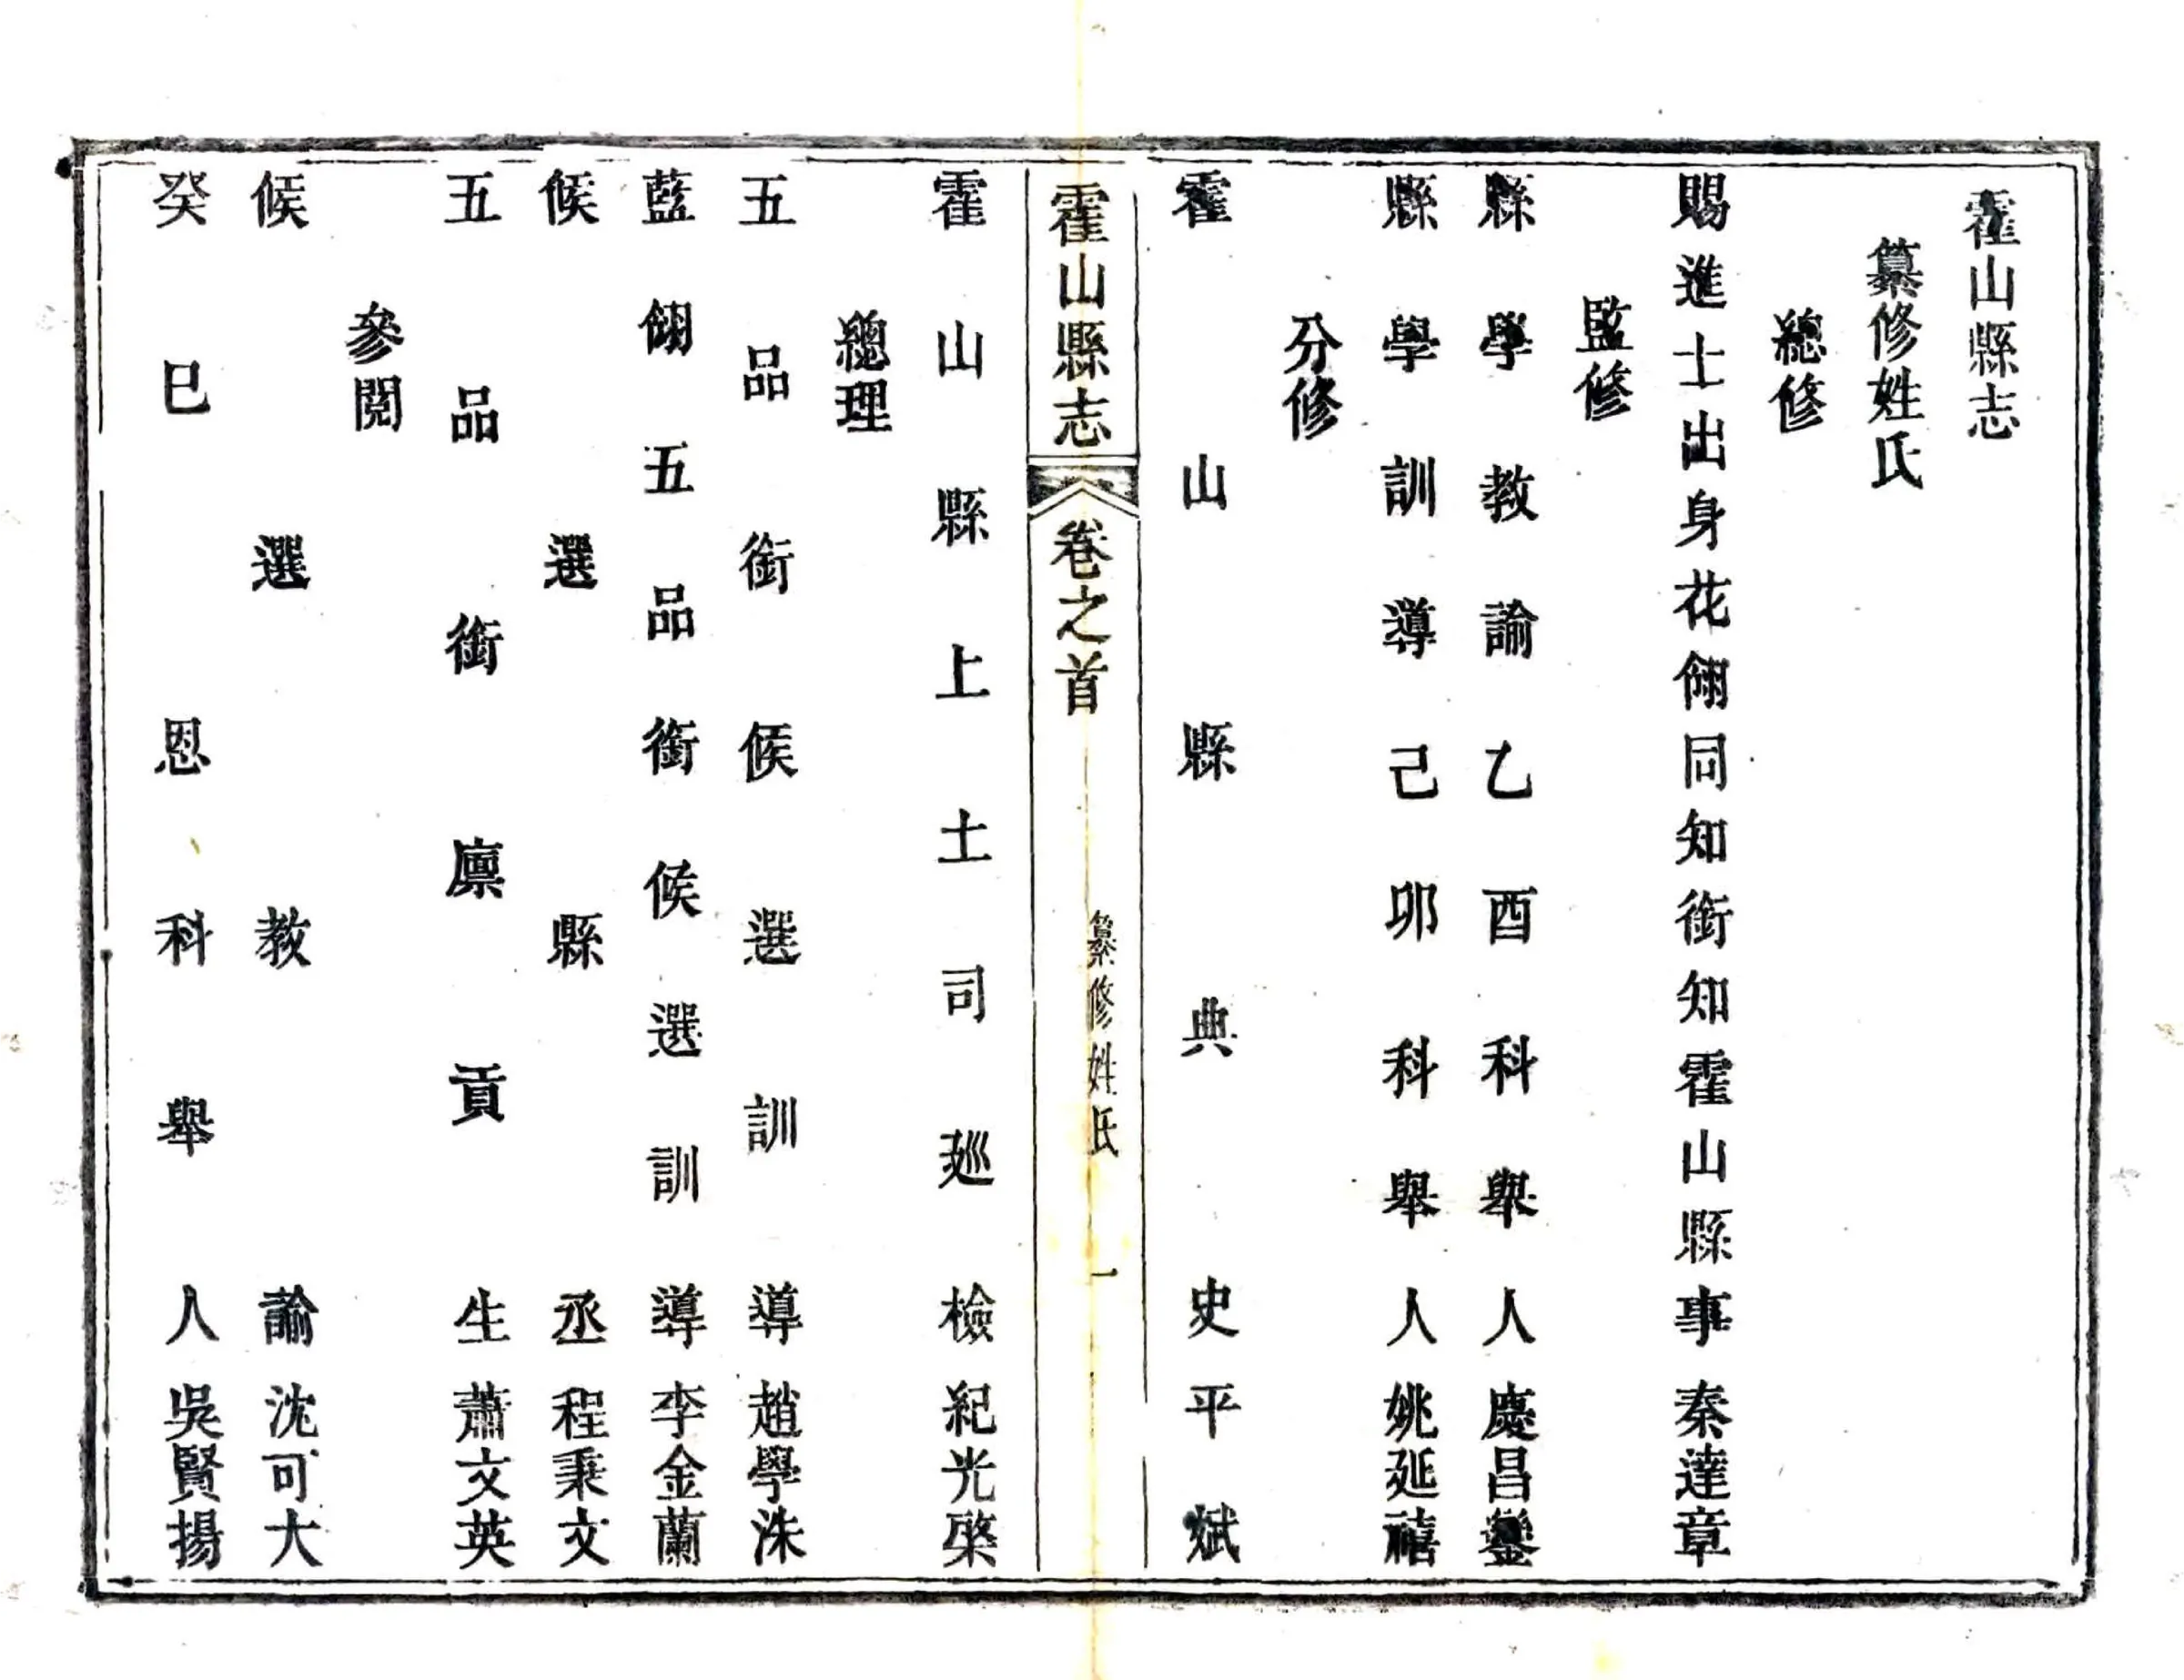 霍山縣志
纂修姓氏
總修
賜進士出身花翎同知銜知霍山縣事秦達章
監修
縣學教諭乙酉科舉人慶昌鑾
縣學訓導己卯科舉人姚延禧
分修
霍山縣典史平斌
霍山縣志
卷之首
纂修姓氏
一
霍山縣上土司廵檢紀光棨
總理
五品銜候選訓導趙學洙
藍翎五品銜候選訓導李金蘭
候選縣丞程秉文
五品銜廪貢生蕭文英
參閱
候選教諭沈可大
癸巳恩科舉人吳賢揚